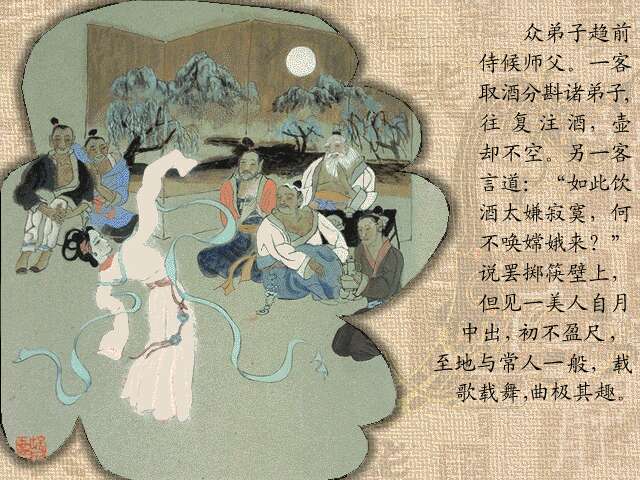 众弟子趋前
侍候师父。一客
取酒分斟诸弟子,
往复注酒，壶
却不空。另一客
言道：“如此饮
酒太嫌寂寞，何
不唤嫦娥来？”
说罢掷筷壁上，
但见一美人自月
中出，初不盈尺，
至地与常人一般，载
歌载舞,曲极其趣。